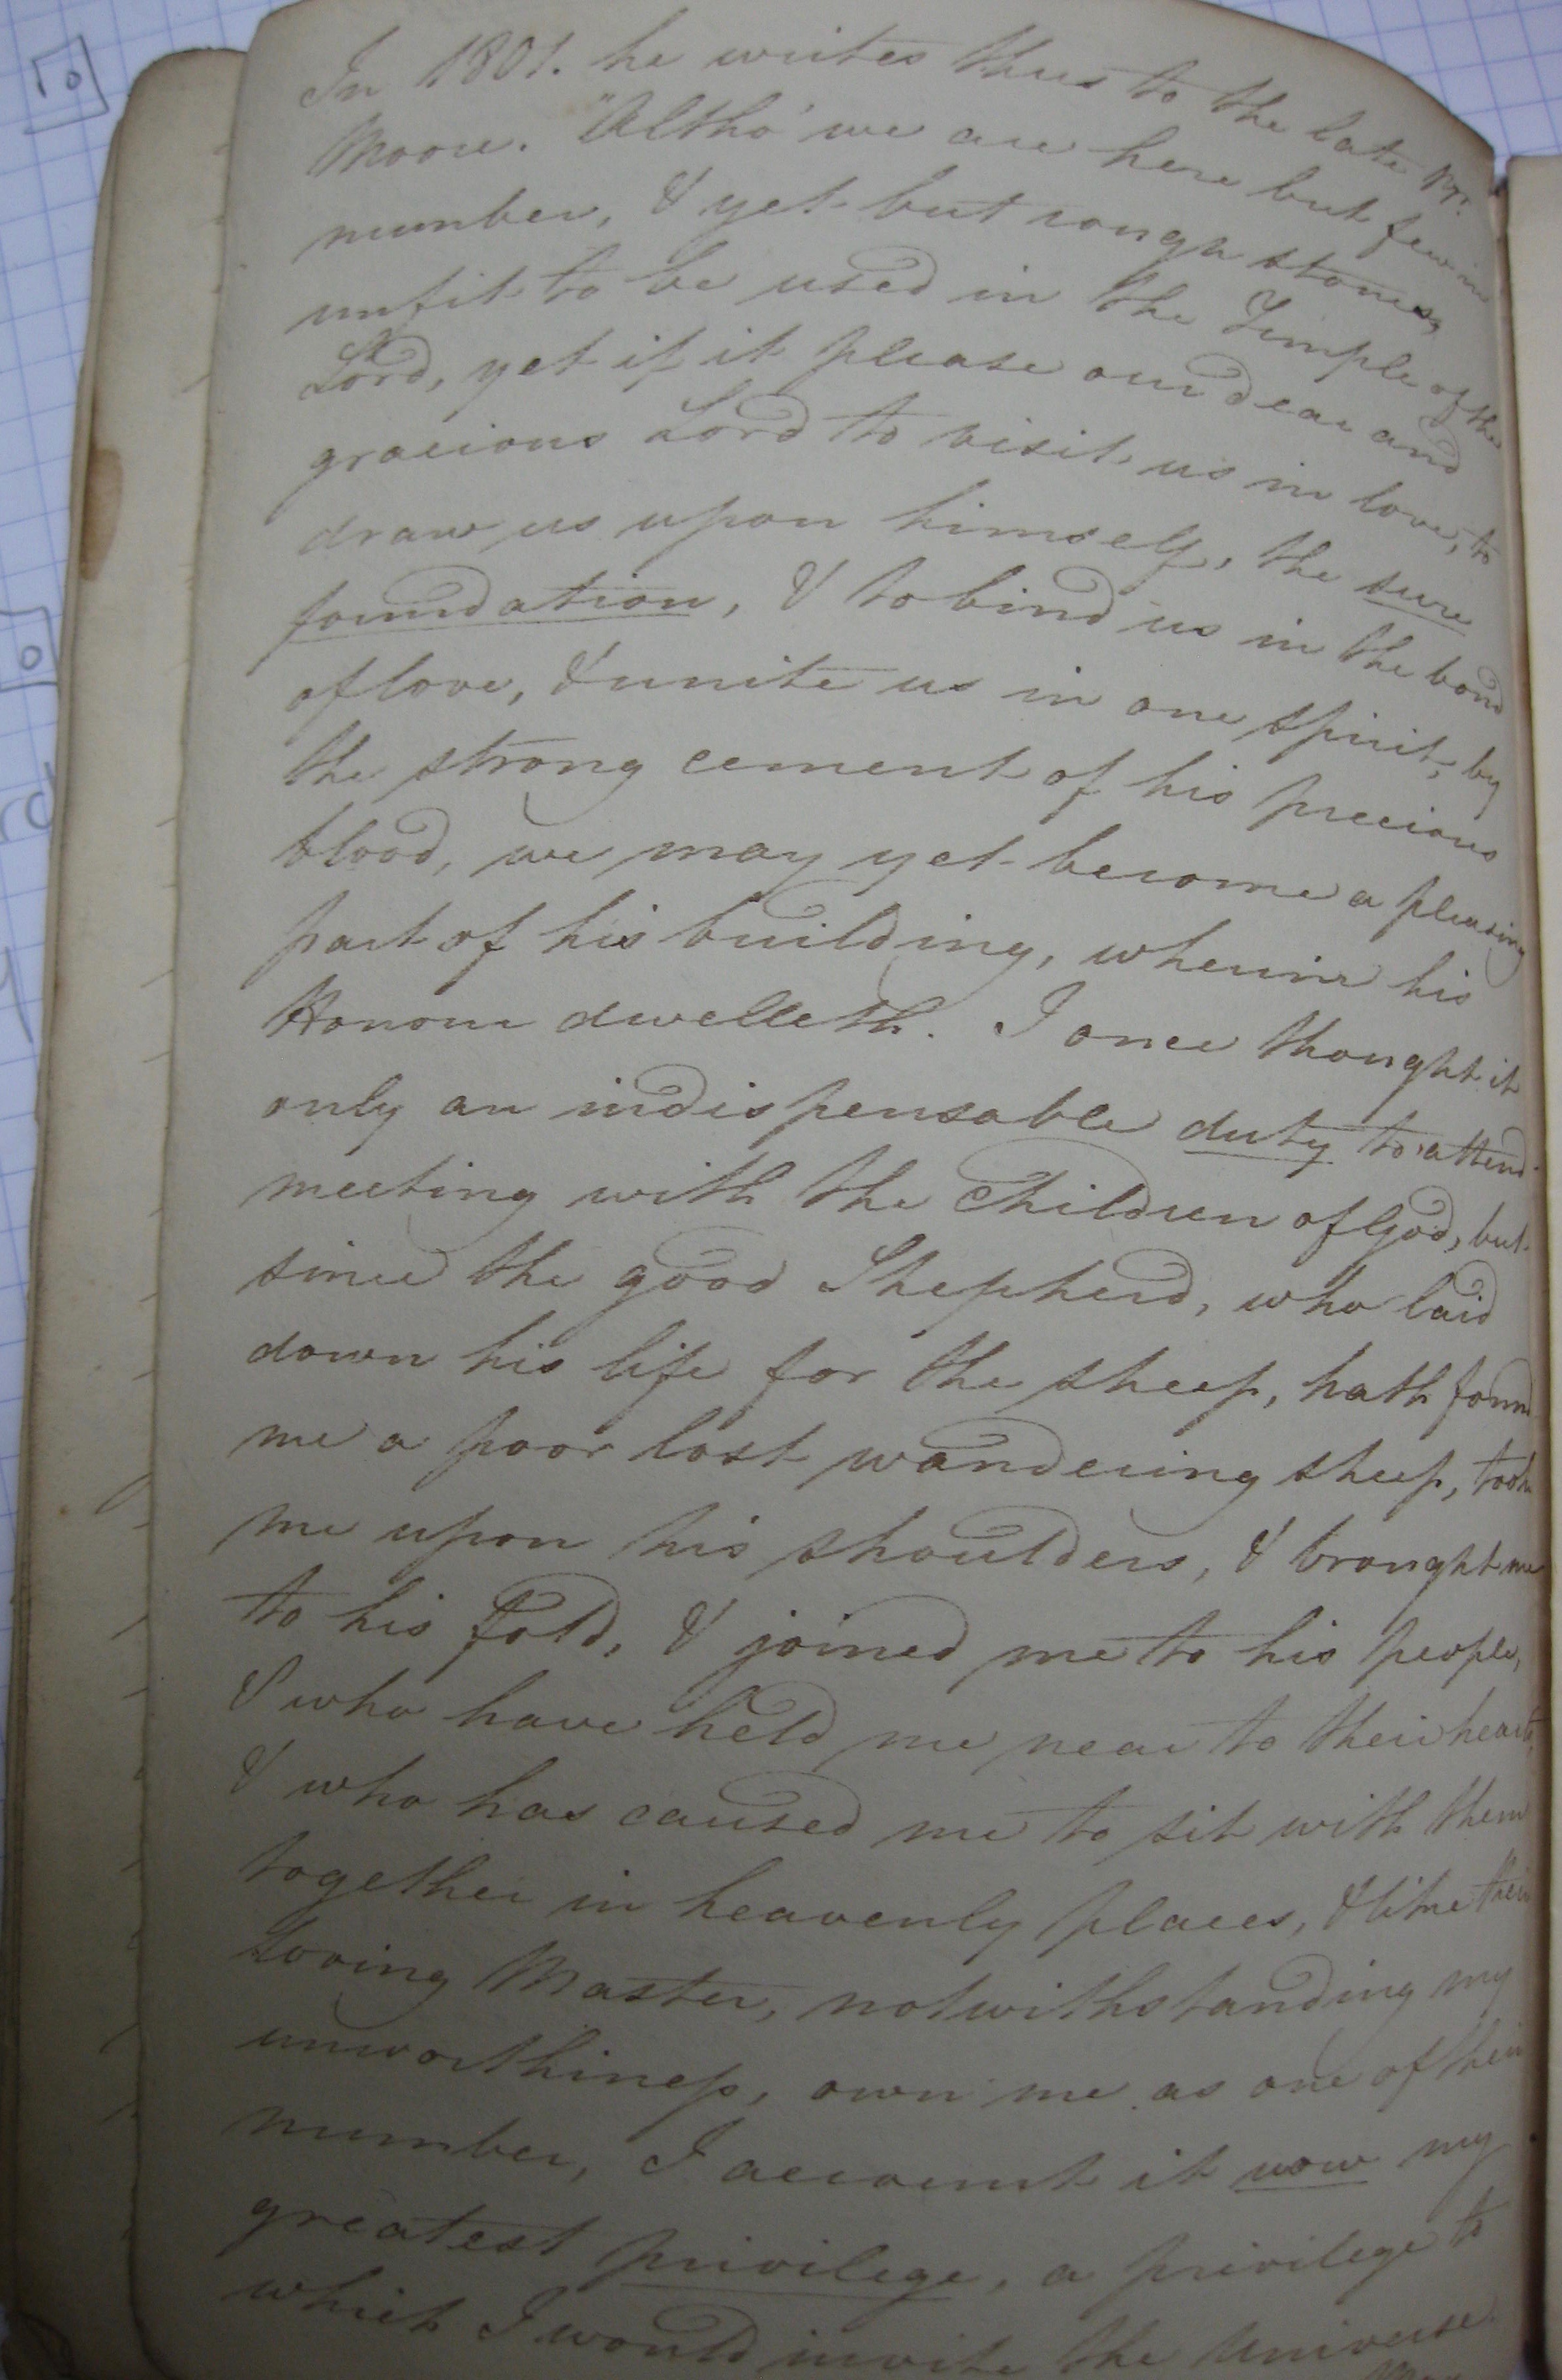 In 1801. he writes thus to the late Mr.
Moore. "Altho' we are here but few in
number, & yet but rough stones,
unfit to be used in the Temple of the
Lord, yet if it please our dear and
gracious Lord to visit us in love, to
draw us upon himself, the sure
foundation, & to bind us in the bond
of love, & unite us in one spirit, by
the strong cement of his precious
blood, we may yet become a pleasing
part of his building, wherein his
Honour dwelleth. I once thought it
only an indispensable duty to attend
meeting with the Children of God, but
since the good Shepherd, who laid
down his life for the sheep, hath found
me a poor lost wandering sheep, took
me upon his shoulders, & brought me
to his fold, & joined me to his people,
& who have held me near to their hearts,
& who has caused me to sit with them
together in heavenly places, & like their
Loving Master, notwithstanding my
unworthiness, own me as one of their
number, I account it now my
greatest privilege, a privilege to
which I would invite the Universe